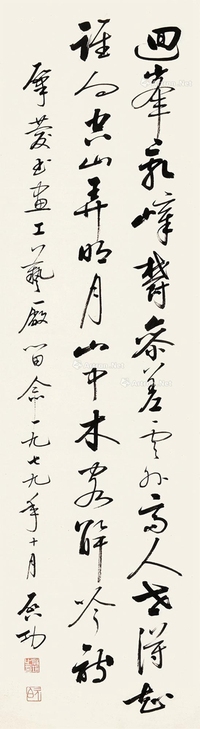 迴峯亂嶂鬱參差雲外高人世得知
誰向空山弄明月山中木客解吟詩
肇慶書畫工藝廠留念一九七九年十月 啟功